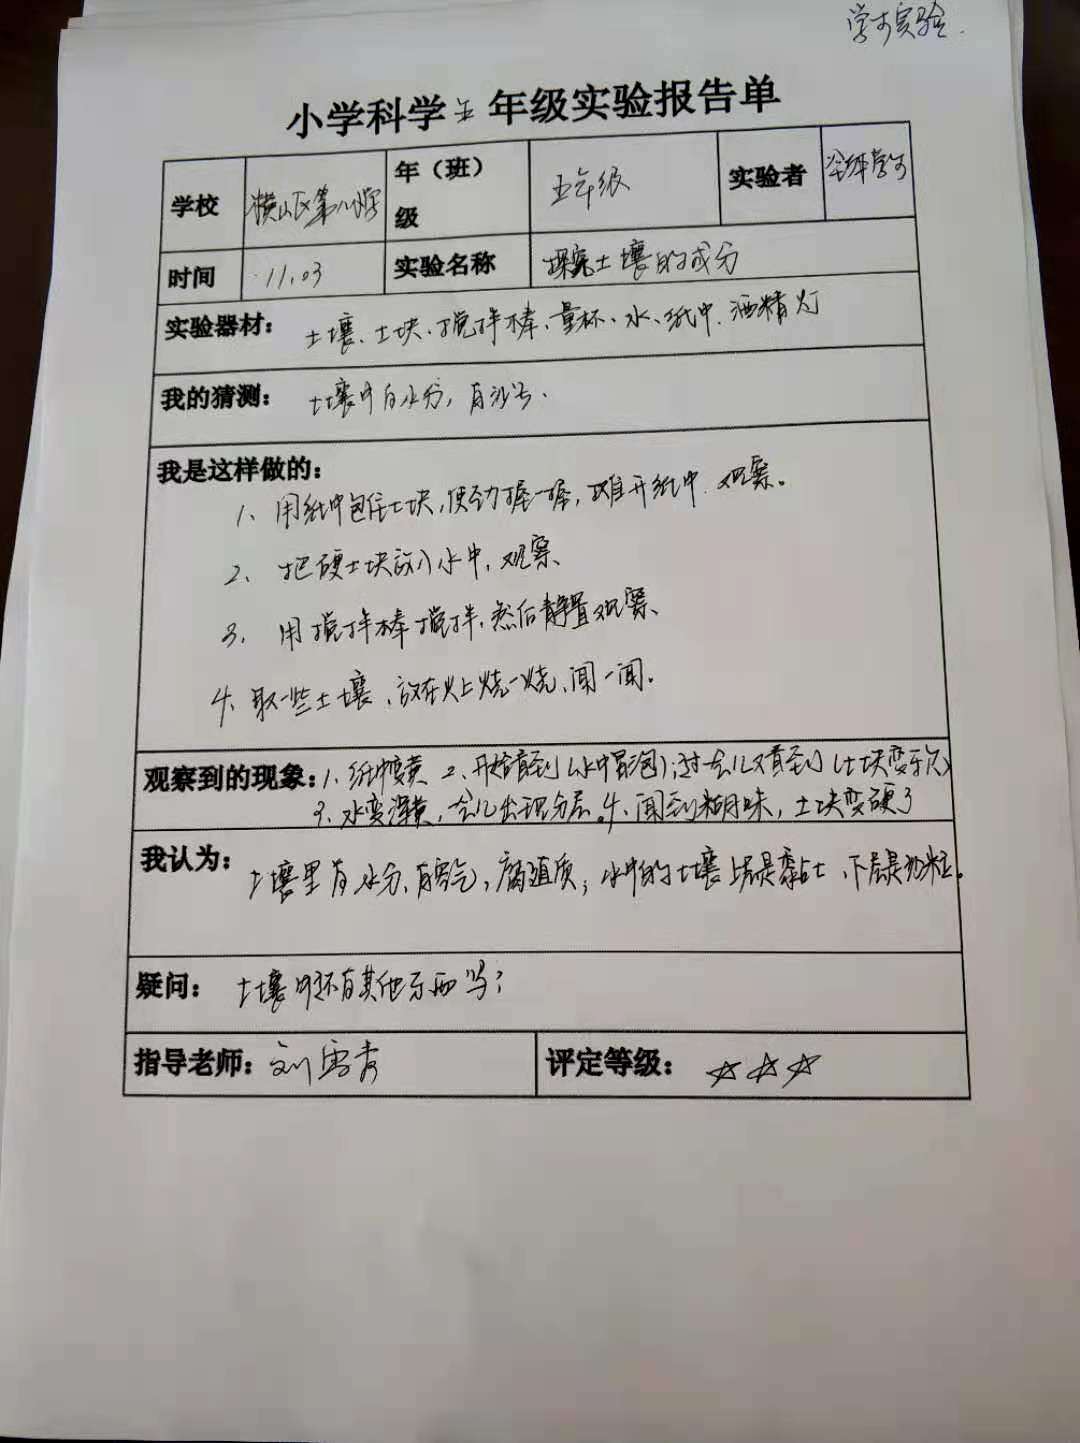 学生实验.
小学科学五年级实验报告单
学校 横山区第八小学 年（班）级 五年级 实验者 全体学生
时间 11.03 实验名称 探究土壤的成分
实验器材： 土壤、土块、搅拌棒、量杯、水、纸巾、酒精灯
我的猜测： 土壤中有水分，有沙子.
我是这样做的：
1、用纸巾包住土块,使劲握一握，摊开纸巾、观察。
2、把硬土块放入水中，观察、
3、用搅拌棒搅拌，然后静置观察、
4、取一些土壤、放在火上烧一烧、闻一闻。
观察到的现象：1、纸巾变黄 2、开始看到（水中冒泡）；过一会儿又看到（土块变
3、水变浑黄，会儿出现分层。4、闻到糊味，土块变硬了
我认为： 土壤里有水分、有空气，腐殖质；水中的土壤上层是黏土、下层是沙粒。
疑问： 土壤中还有其他东西吗？
指导老师：刘 评定等级：☆☆☆